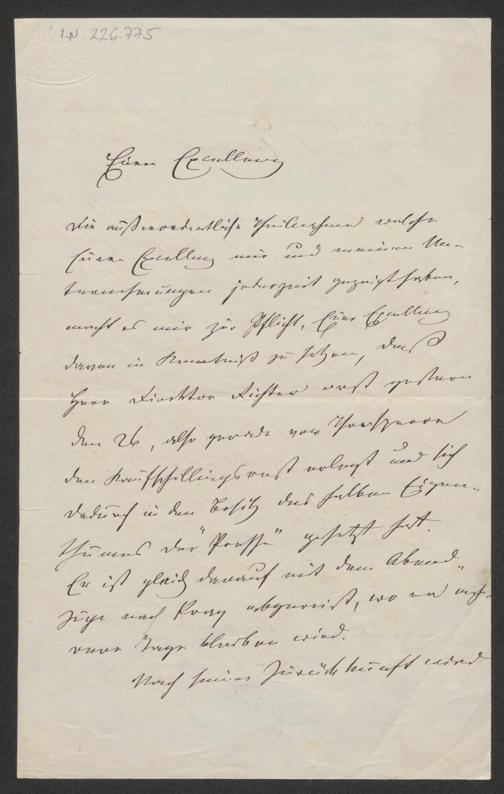 I.N. 226.775
Euere Excellenz
Die außerordentliche Theilnahme welche
Euere Excellenz mir und meinen Un-
ternehmungen jederzeit gezeigt haben,
macht es mir zur Pflicht, Euer Excellenz
davon in Kenntniß zu setzen, daß
Herr Direktor Richter erst gestern
den 26, also gerade vor Thorsperre
den Kaufschillingsrest erlegt und sich
dadurch in den Besitz des halben Eigen-
thumes der "Presse" gesetzt hat.
Er ist gleich darauf mit dem Abend-
zuge nach Prag abgereist, wo er meh-
rere Tage bleiben wird.
Nach seiner Zurückkunft wird